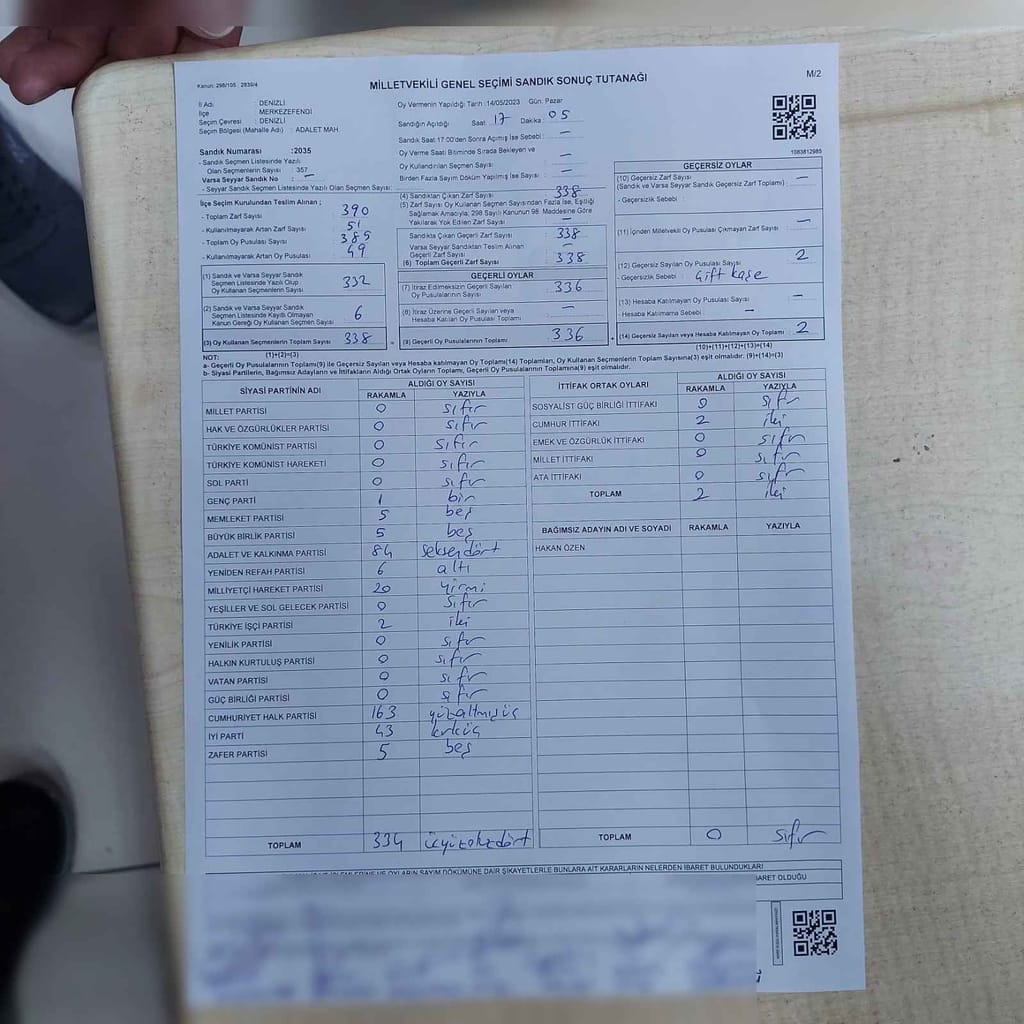 Kanun: 298/105 2839/4
MİLLETVEKİLİ GENEL SEÇİMİ SANDIK SONUÇ TUTANAĞI
M/2
İl Adı : DENİZLİ
İlçe : MERKEZEFENDİ
Seçim Çevresi : DENİZLİ
Seçim Bölgesi (Mahalle Adı) : ADALET MAH.
Sandık Numarası : 2035
- Sandık Seçmen Listesinde Yazılı
Olan Seçmenlerin Sayısı : 357
Varsa Seyyar Sandık No –
- Seyyar Sandık Seçmen Listesinde Yazılı Olan Seçmen Sayısı:
İlçe Seçim Kurulundan Teslim Alınan ;
- Toplam Zarf Sayısı 390
- Kullanılmayarak Artan Zarf Sayısı 51
- Toplam Oy Pusulası Sayısı 385
- Kullanılmayarak Artan Oy Pusulası 49
(1) Sandık ve Varsa Seyyar Sandık
Seçmen Listesinde Yazılı Olup
Oy Kullanan Seçmenlerin Sayısı 332
(2) Sandık ve Varsa Seyyar Sandık
Seçmen Listesinde Kayıtlı Olmayan
Kanun Gereği Oy Kullanan Seçmen Sayısı 6
(3) Oy Kullanan Seçmenlerin Toplam Sayısı 338
(1)+(2)=(3)
Oy Vermenin Yapıldığı Tarih :14/05/2023 Gün: Pazar
Sandığın Açıldığı Saat: 17 Dakika : 05
Sandık Saat 17:00'den Sonra Açılmış İse Sebebi : –
Oy Verme Saati Bitiminde Sırada Bekleyen ve
Oy Kullandırılan Seçmen Sayısı –
Birden Fazla Sayım Döküm Yapılmış İse Sayısı : –
(4) Sandıktan Çıkan Zarf Sayısı 338
(5) Zarf Sayısı Oy Kullanan Seçmen Sayısından Fazla İse, Eşitliği
Sağlamak Amacıyla; 298 Sayılı Kanunun 98. Maddesine Göre
Yakılarak Yok Edilen Zarf Sayısı –
Sandıkta Çıkan Geçerli Zarf Sayısı 338
Varsa Seyyar Sandıktan Teslim Alınan
Geçerli Zarf Sayısı –
(6) Toplam Geçerli Zarf Sayısı 338
GEÇERLİ OYLAR
(7) İtiraz Edilmeksizin Geçerli Sayılan
Oy Pusulalarının Sayısı 336
(8) İtiraz Üzerine Geçerli Sayılan veya
Hesaba Katılan Oy Pusulası Toplamı –
(9) Geçerli Oy Pusulalarının Toplamı 336
1083812985
GEÇERSİZ OYLAR
(10) Geçersiz Zarf Sayısı –
(Sandık ve Varsa Seyyar Sandık Geçersiz Zarf Toplamı) :
- Geçersizlik Sebebi :
(11) İçinden Milletvekili Oy Pusulası Çıkmayan Zarf Sayısı –
(12) Geçersiz Sayılan Oy Pusulası Sayısı 2
- Geçersizlik Sebebi : Çift kaşe
(13) Hesaba Katılmayan Oy Pusulası Sayısı –
- Hesaba Katılmama Sebebi : –
(14) Geçersiz Sayılan veya Hesaba Katılmayan Oy Toplamı 2
(10)+(11)+(12)+(13)=(14)
NOT:
a- Geçerli Oy Pusulalarının Toplamı(9) ile Geçersiz Sayılan veya Hesaba katılmayan Oy Toplamı(14) Toplamları, Oy Kullanan Seçmenlerin Toplam Sayısına(3) eşit olmalıdır. (9)+(14)=(3)
b- Siyasi Partilerin, Bağımsız Adayların ve İttifakların Aldığı Ortak Oyların Toplamı, Geçerli Oy Pusulalarının Toplamına(9) eşit olmalıdır.
SİYASİ PARTİNİN ADI ALDIĞI OY SAYISI
RAKAMLA YAZIYLA
MİLLET PARTİSİ 0 sıfır
HAK VE ÖZGÜRLÜKLER PARTİSİ 0 sıfır
TÜRKİYE KOMÜNİST PARTİSİ 0 sıfır
TÜRKİYE KOMÜNİST HAREKETİ 0 sıfır
SOL PARTİ 0 sıfır
GENÇ PARTİ 1 bir
MEMLEKET PARTİSİ 5 beş
BÜYÜK BİRLİK PARTİSİ 5 beş
ADALET VE KALKINMA PARTİSİ 84 seksendört
YENİDEN REFAH PARTİSİ 6 altı
MİLLİYETÇİ HAREKET PARTİSİ 20 yirmi
YEŞİLLER VE SOL GELECEK PARTİSİ 0 sıfır
TÜRKİYE İŞÇİ PARTİSİ 2 iki
YENİLİK PARTİSİ 0 sıfır
HALKIN KURTULUŞ PARTİSİ 0 sıfır
VATAN PARTİSİ 0 sıfır
GÜÇ BİRLİĞİ PARTİSİ 0 sıfır
CUMHURİYET HALK PARTİSİ 163 yüzaltmışüç
İYİ PARTİ 43 kırküç
ZAFER PARTİSİ 5 beş
TOPLAM 334 üçyüzotuzdört
İTTİFAK ORTAK OYLARI ALDIĞI OY SAYISI
RAKAMLA YAZIYLA
SOSYALİST GÜÇ BİRLİĞİ İTTİFAKI 0 sıfır
CUMHUR İTTİFAKI 2 iki
EMEK VE ÖZGÜRLÜK İTTİFAKI 0 sıfır
MİLLET İTTİFAKI 0 sıfır
ATA İTTİFAKI 0 sıfır
TOPLAM 2 iki
BAĞIMSIZ ADAYIN ADI VE SOYADI RAKAMLA YAZIYLA
HAKAN ÖZEN
TOPLAM 0 sıfır
İŞLEMLERİNE VE OYLARIN SAYIM DÖKÜMÜNE DAİR ŞİKAYETLERLE BUNLARA AİT KARARLARIN NELERDEN İBARET BULUNDUKLARI
BARET OLDUĞU